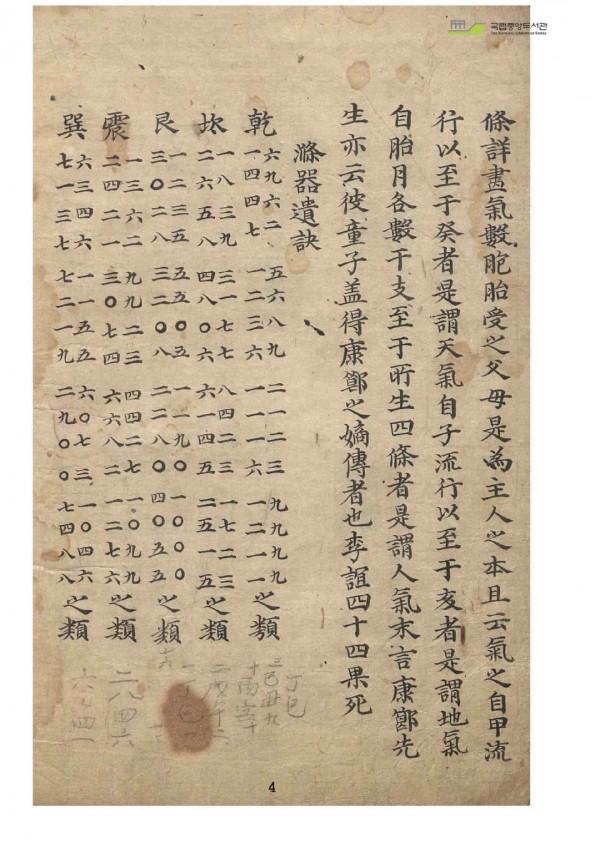 국립중앙도서관
THE NATIONAL LIBRARY OF KOREA
條詳盡氣數胞胎受之父母是為主人之本且云氣之自甲流
行以至于癸者是謂天氣自子流行以至于亥者是謂地氣
自胎月各數干支至于所生四條者是謂人氣末言康節先
生亦云彼童子盖得康節之嫡傳者也李誼四十四果死
滌器遺訣
乾 六九六二 五六八九 二一二三 九九九九
一四四七 一二三六 一一一六 一二一一 之類
坎 一八三九 三一七七 八四二三 一七二三
二六五八 四八〇六 六一四五 二五一五 之類
艮 一二三五 五五〇五 一一九〇 一〇〇〇
三〇二八 三二〇八 二二八〇 四〇五五 之類
震 一三六二 九九二三 四四二七 一〇九九
二四二一 三〇七四 六六八二 一二七六 之類
巽 六三四六 一一五五 六〇七三 一〇四六
七一三七 七二一九 二九〇〇 七四八八 之類
丁巳
二八四六
4